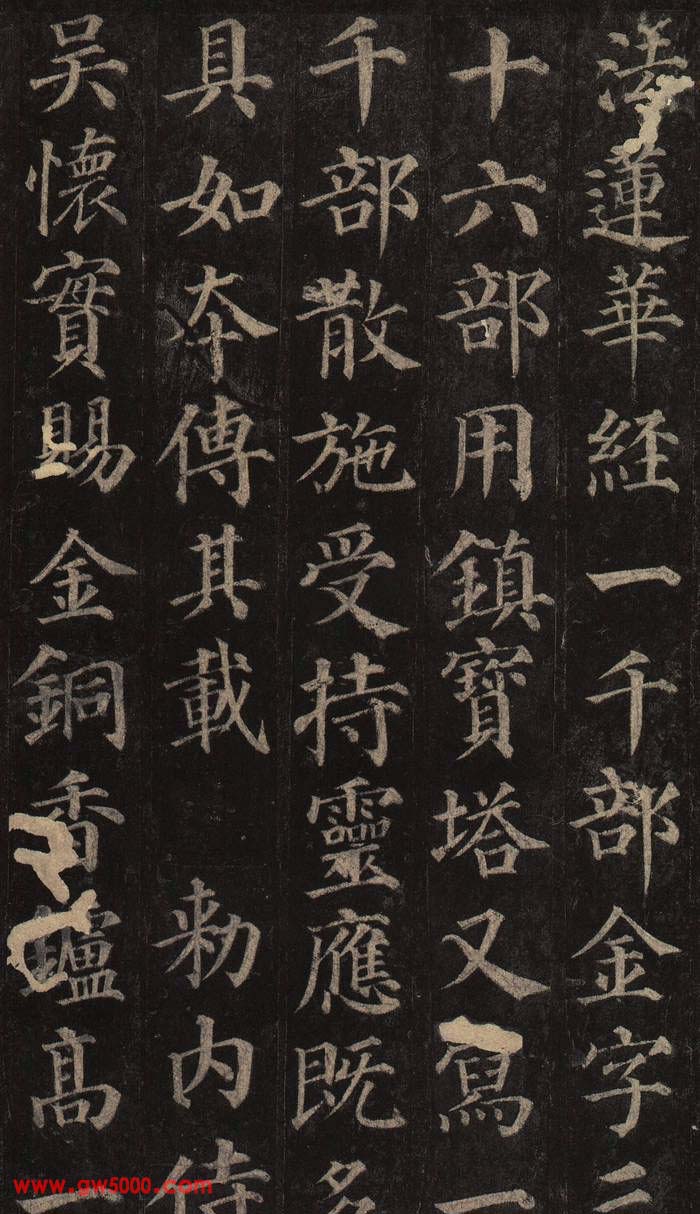 法蓮華経一千部金字三
十六部用鎮寶塔又寫一
千部散施受持靈應既多
具如本傳其載 敕内侍
吳懷實賜金銅香鑪高一
www.gw5000.com